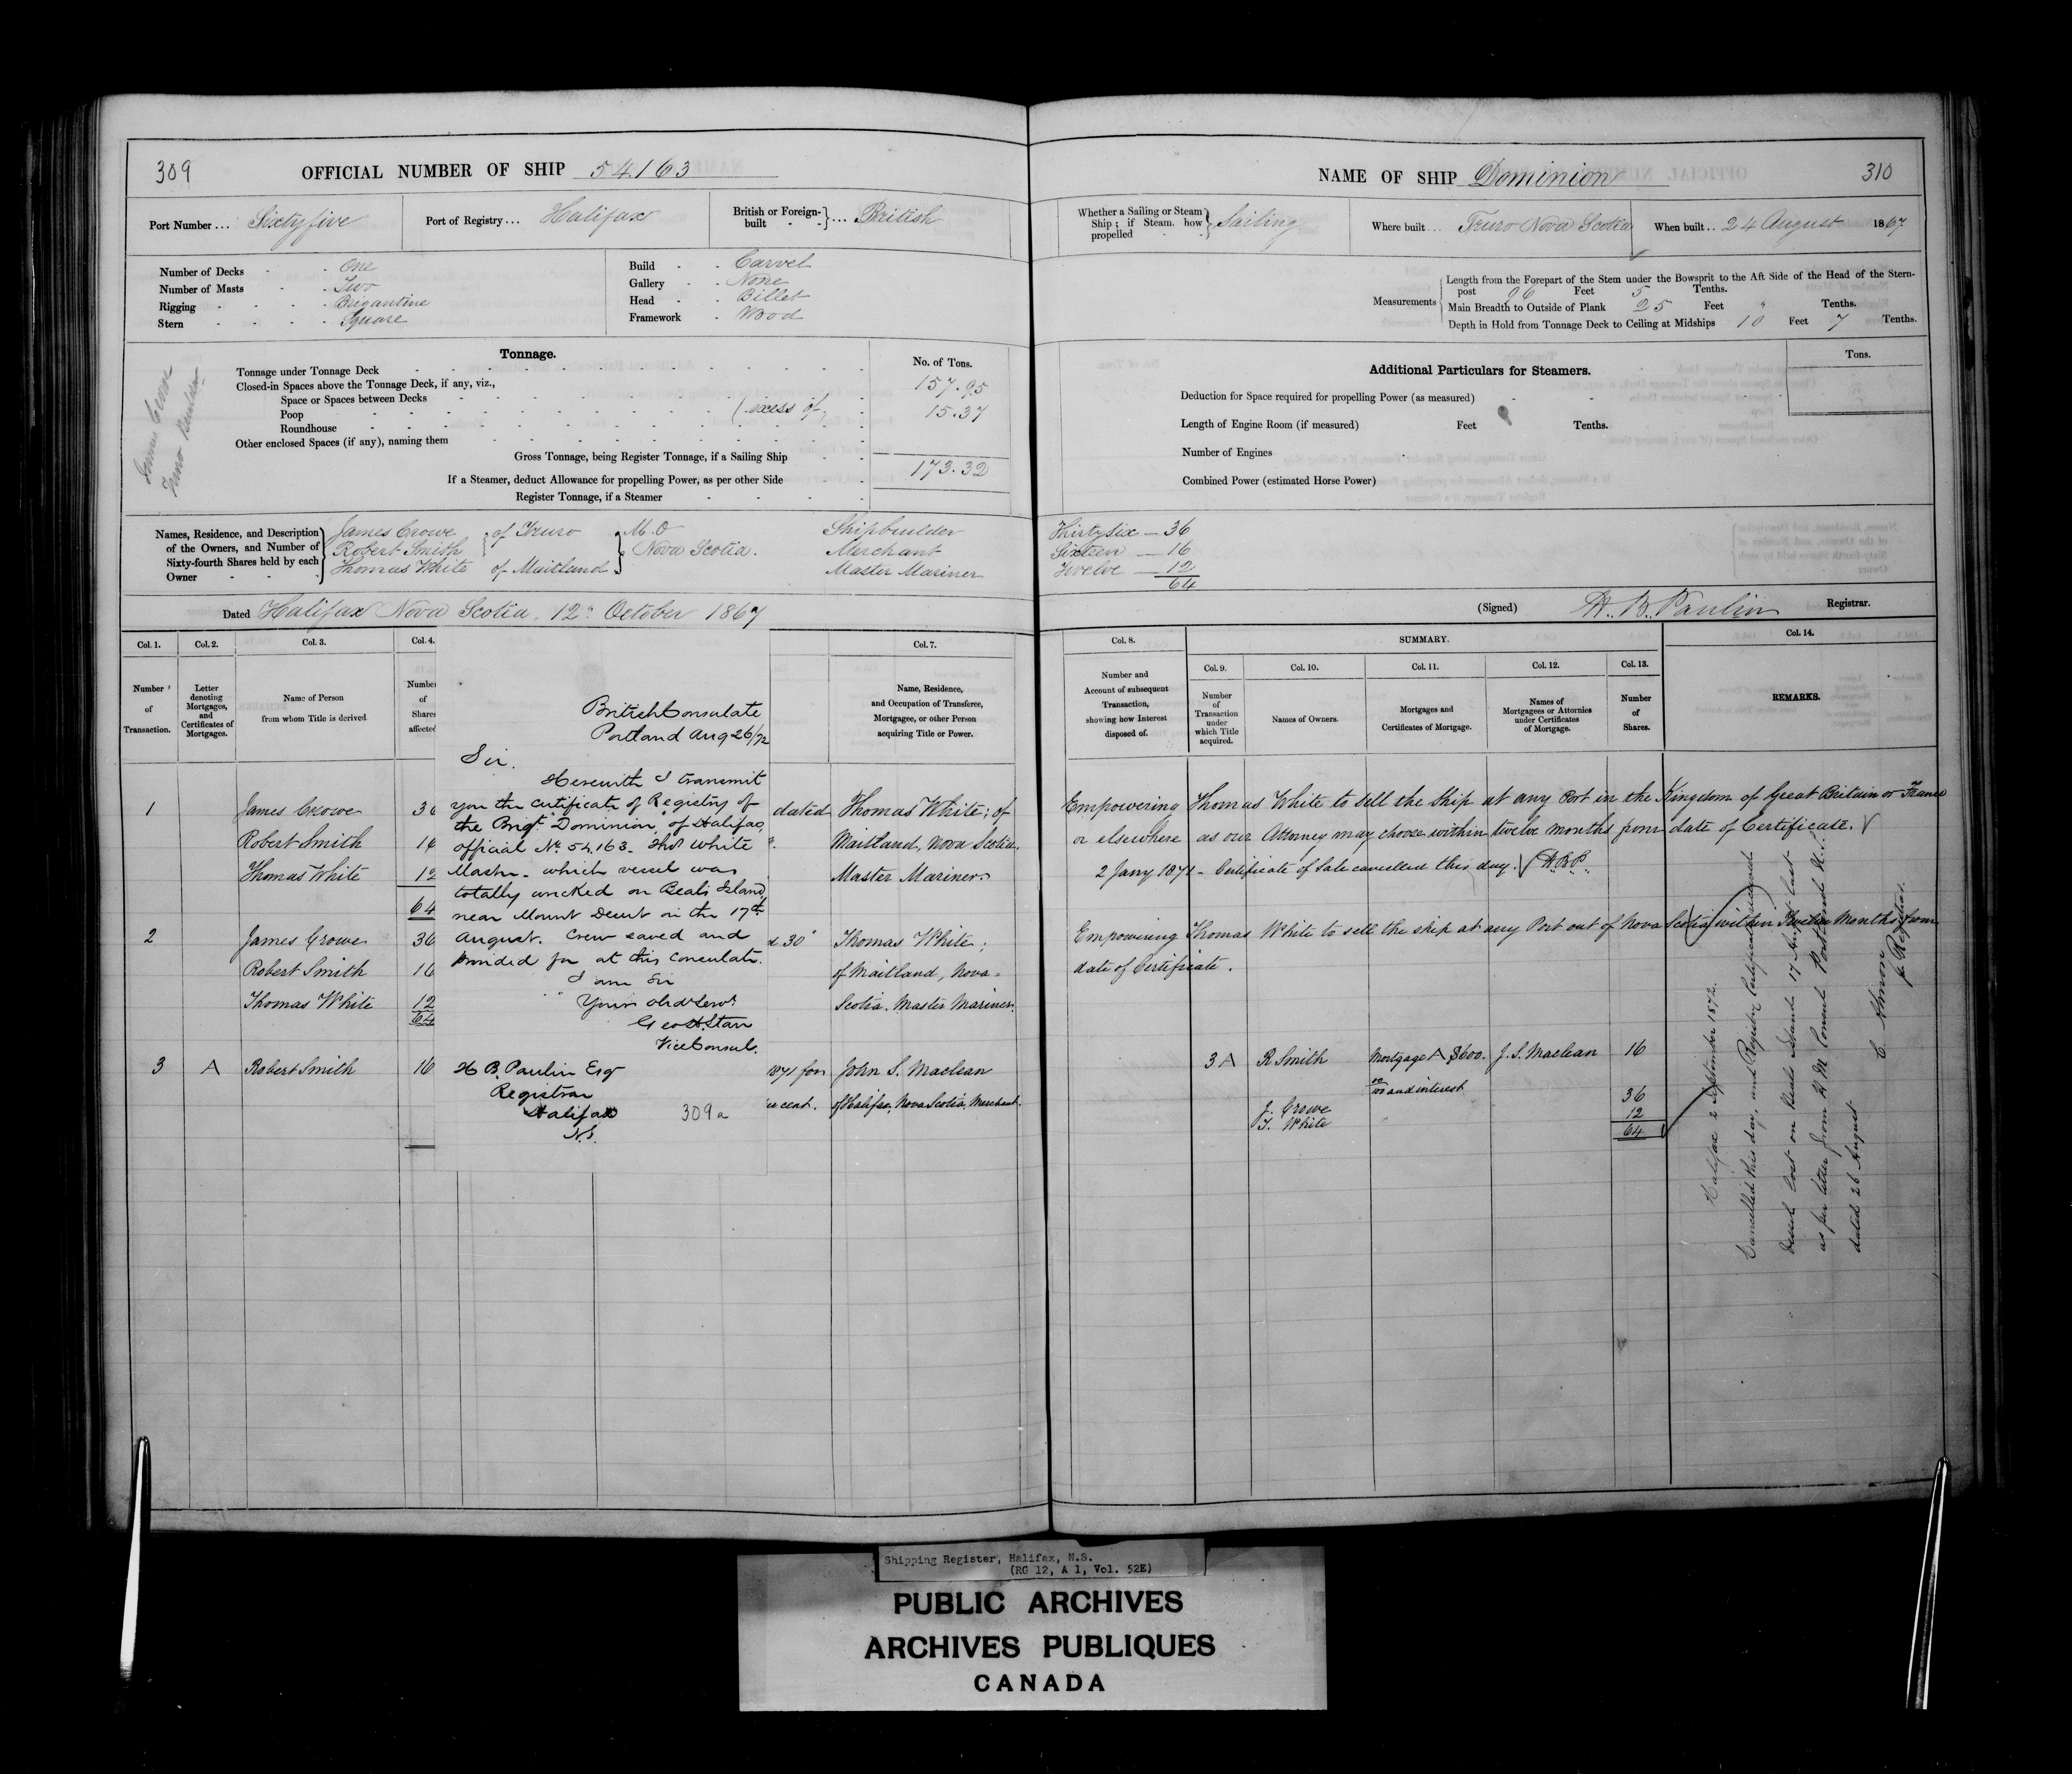 309
OFFICIAL NUMBER OF SHIP 54.163
Port Number ... Sixty five
Port of Registry ... Halifax
British or Foreign-built - - } ... British
Number of Decks - - One
Number of Masts - - Two
Rigging - - - - Brigantine
Stern - - - - Square
Build - - Carvel
Gallery - - None
Head - - Billet
Framework - Wood
James Crowe
Truro Builder
Tonnage.
No. of Tons.
Tonnage under Tonnage Deck 157.95
Closed-in Spaces above the Tonnage Deck, if any, viz.,
Space or Spaces between Decks
Poop (excess of) 15.37
Roundhouse
Other enclosed Spaces (if any), naming them
Gross Tonnage, being Register Tonnage, if a Sailing Ship 173.32
If a Steamer, deduct Allowance for propelling Power, as per other Side
Register Tonnage, if a Steamer
Names, Residence, and Description of the Owners, and Number of Sixty-fourth Shares held by each Owner
James Crowe } of Truro } M. O Shipbuilder
Robert Smith } Nova Scotia. Merchant
Thomas White of Maitland Master Mariner
Dated Halifax Nova Scotia, 12" October 1867
Col. 1. Col. 2. Col. 3. Col. 4. Col. 7.
Number of Transaction.
Letter denoting Mortgages, and Certificates of Mortgages.
Name of Person from whom Title is derived
Number of Shares affected
Name, Residence, and Occupation of Transferee, Mortgagee, or other Person acquiring Title or Power.
1 James Crowe 36 dated Thomas White; of
Robert Smith 16 Maitland, Nova Scotia.
Thomas White 12 Master Mariner.
64
2 James Crowe 36 30" Thomas White;
Robert Smith 16 of Maitland, Nova=
Thomas White 12 Scotia. Master Mariner.
64
3 A Robert Smith 16 1871 for John S. Maclean
cent. of Halifax, Nova Scotia, Merchant.
British Consulate
Portland Aug 26/72
Sir.
Herewith I transmit
you the certificate of Registry of
the Brigt. "Dominion" of Halifax,
official No. 54,163 - Thos White
Master - which vessel was
totally wrecked on Beals Island,
near Mount Desert on the 17th
August. Crew saved and
provided for at this Consulate.
I am Sir
Your obdt Servt
Geo H. Starr
Vice Consul.
H B. Paulin Esq
Registrar
Halifax
N.S.
309a
NAME OF SHIP Dominion
310
Whether a Sailing or Steam Ship; if Steam. how propelled } Sailing
Where built ... Truro Nova Scotia
When built .. 24 August 1867
Measurements
Length from the Forepart of the Stem under the Bowsprit to the Aft Side of the Head of the Stern-
post 96 Feet 5 Tenths.
Main Breadth to Outside of Plank 25 Feet " Tenths.
Depth in Hold from Tonnage Deck to Ceiling at Midships 10 Feet 7 Tenths.
Additional Particulars for Steamers.
Tons.
Deduction for Space required for propelling Power (as measured)
Length of Engine Room (if measured) Feet Tenths.
Number of Engines
Combined Power (estimated Horse Power)
Thirty six — 36
Sixteen — 16
Twelve — 12
64
(Signed) H. B. Paulin Registrar.
Col. 8. SUMMARY. Col. 14.
Col. 9. Col. 10. Col. 11. Col. 12. Col. 13.
Number and Account of subsequent Transaction, showing how Interest disposed of.
Number of Transaction under which Title acquired.
Names of Owners.
Mortgages and Certificates of Mortgage.
Names of Mortgagees or Attornies under Certificates of Mortgage.
Number of Shares.
REMARKS.
Empowering Thomas White to sell the Ship at any Port in the Kingdom of Great Britain or France
or elsewhere as our Attorney may choose within twelve months from date of Certificate.
2 Jany 1871 - Certificate of Sale cancelled this day. H.B.P.
Empowering Thomas White to sell the ship at any Port out of Nova Scotia within Twelve Months from
date of Certificate.
3 A R Smith Mortgage A $600. J. S. Maclean 16
and interest
J. Crowe 36
T. White 12
64
Halifax 2 September 1872.
Cancelled this day, and Registry Certificate received
Vessel lost on Beals Island 17 August last
as per letter from H M Consul Portland
dated 26 August
C. Almon
p. Registrar.
Shipping Register, Halifax, N.S.
(RG 12, A 1, Vol. 52E)
PUBLIC ARCHIVES
ARCHIVES PUBLIQUES
CANADA